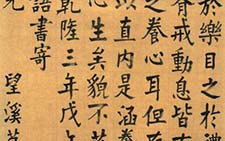 於樂目之於禮
有戒動息皆有
之養心耳但存
以直內是涵養
心生矣貌不莊
乾隆三年戊午
語書寄
兄 望溪